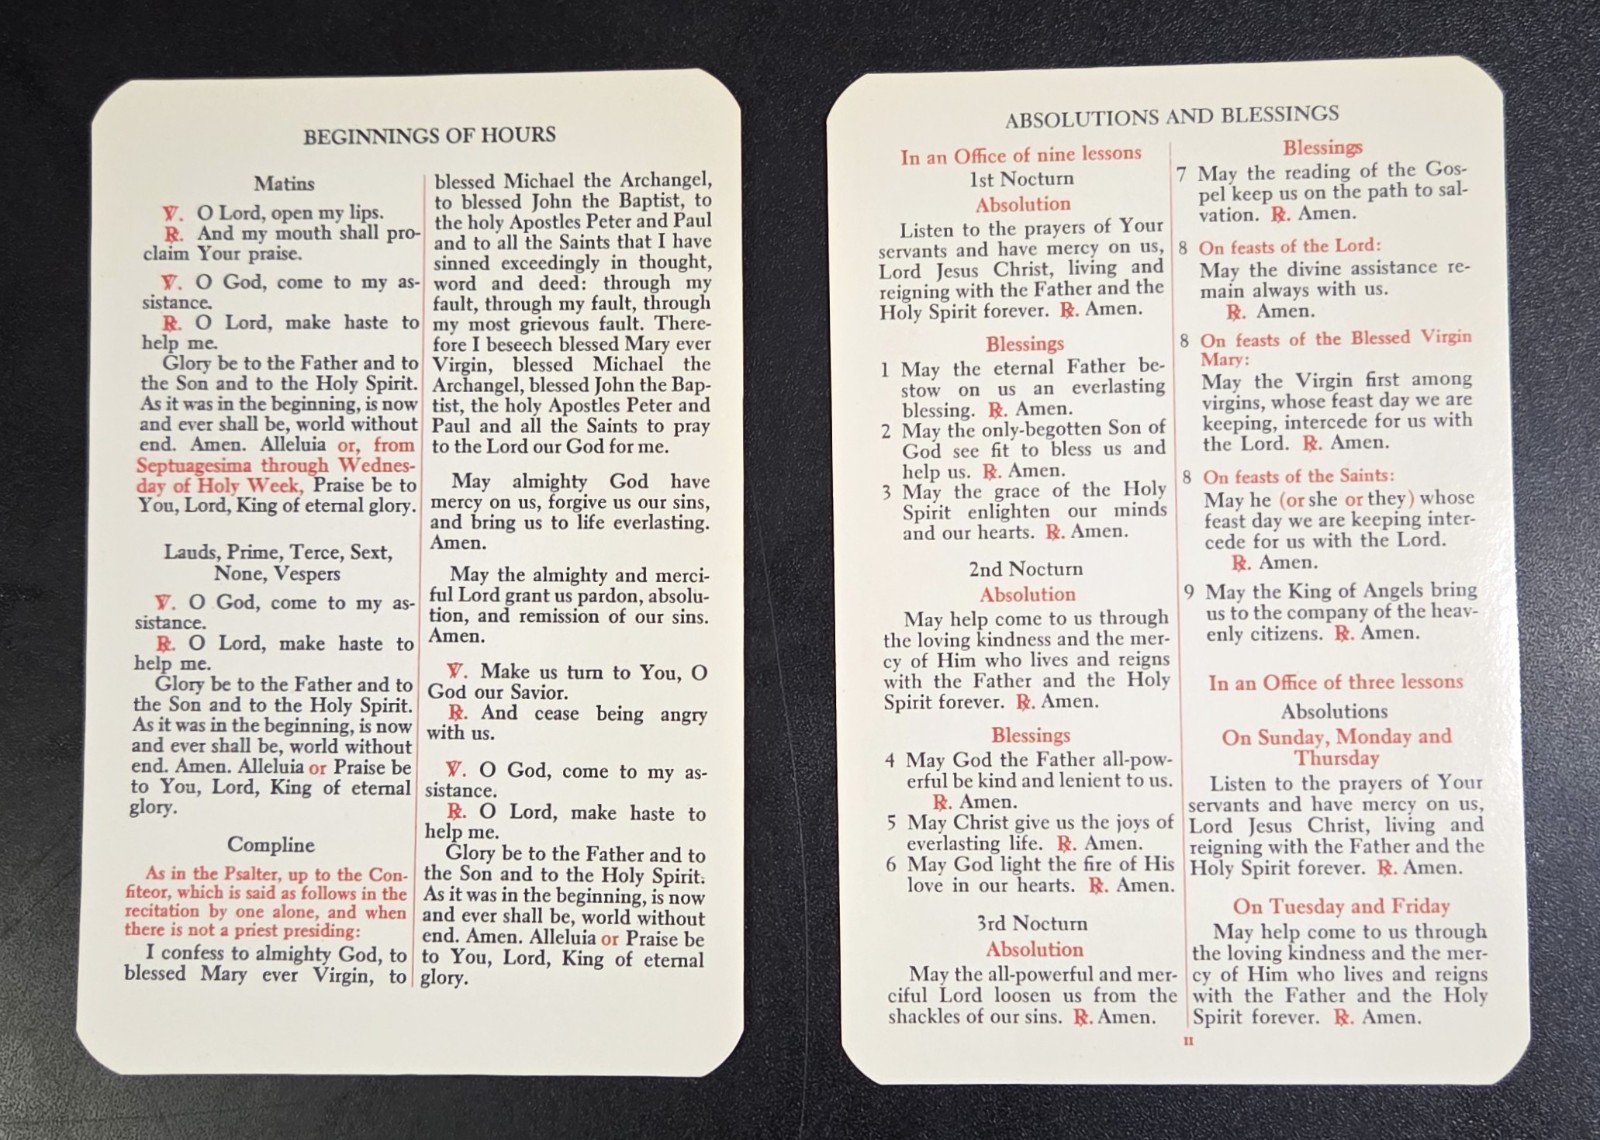 BEGINNINGS OF HOURS
Matins
℣. O Lord, open my lips.
℟. And my mouth shall pro-
claim Your praise.
℣. O God, come to my as-
sistance.
℟. O Lord, make haste to
help me.
Glory be to the Father and to
the Son and to the Holy Spirit.
As it was in the beginning, is now
and ever shall be, world without
end. Amen. Alleluia or, from
Septuagesima through Wednes-
day of Holy Week, Praise be to
You, Lord, King of eternal glory.
Lauds, Prime, Terce, Sext,
None, Vespers
℣. O God, come to my as-
sistance.
℟. O Lord, make haste to
help me.
Glory be to the Father and to
the Son and to the Holy Spirit.
As it was in the beginning, is now
and ever shall be, world without
end. Amen. Alleluia or Praise be
to You, Lord, King of eternal
glory.
Compline
As in the Psalter, up to the Con-
fiteor, which is said as follows in the
recitation by one alone, and when
there is not a priest presiding:
I confess to almighty God, to
blessed Mary ever Virgin, to
blessed Michael the Archangel,
to blessed John the Baptist, to
the holy Apostles Peter and Paul
and to all the Saints that I have
sinned exceedingly in thought,
word and deed: through my
fault, through my fault, through
my most grievous fault. There-
fore I beseech blessed Mary ever
Virgin, blessed Michael the
Archangel, blessed John the Bap-
tist, the holy Apostles Peter and
Paul and all the Saints to pray
to the Lord our God for me.
May almighty God have
mercy on us, forgive us our sins,
and bring us to life everlasting.
Amen.
May the almighty and merci-
ful Lord grant us pardon, absolu-
tion, and remission of our sins.
Amen.
℣. Make us turn to You, O
God our Savior.
℟. And cease being angry
with us.
℣. O God, come to my as-
sistance.
℟. O Lord, make haste to
help me.
Glory be to the Father and to
the Son and to the Holy Spirit.
As it was in the beginning, is now
and ever shall be, world without
end. Amen. Alleluia or Praise be
to You, Lord, King of eternal
glory.
ABSOLUTIONS AND BLESSINGS
In an Office of nine lessons
1st Nocturn
Absolution
Listen to the prayers of Your
servants and have mercy on us,
Lord Jesus Christ, living and
reigning with the Father and the
Holy Spirit forever. ℟. Amen.
Blessings
1 May the eternal Father be-
stow on us an everlasting
blessing. ℟. Amen.
2 May the only-begotten Son of
God see fit to bless us and
help us. ℟. Amen.
3 May the grace of the Holy
Spirit enlighten our minds
and our hearts. ℟. Amen.
2nd Nocturn
Absolution
May help come to us through
the loving kindness and the mer-
cy of Him who lives and reigns
with the Father and the Holy
Spirit forever. ℟. Amen.
Blessings
4 May God the Father all-pow-
erful be kind and lenient to us.
℟. Amen.
5 May Christ give us the joys of
everlasting life. ℟. Amen.
6 May God light the fire of His
love in our hearts. ℟. Amen.
3rd Nocturn
Absolution
May the all-powerful and mer-
ciful Lord loosen us from the
shackles of our sins. ℟. Amen.
Blessings
7 May the reading of the Gos-
pel keep us on the path to sal-
vation. ℟. Amen.
8 On feasts of the Lord:
May the divine assistance re-
main always with us.
℟. Amen.
8 On feasts of the Blessed Virgin
Mary:
May the Virgin first among
virgins, whose feast day we are
keeping, intercede for us with
the Lord. ℟. Amen.
8 On feasts of the Saints:
May he (or she or they) whose
feast day we are keeping inter-
cede for us with the Lord.
℟. Amen.
9 May the King of Angels bring
us to the company of the heav-
enly citizens. ℟. Amen.
In an Office of three lessons
Absolutions
On Sunday, Monday and
Thursday
Listen to the prayers of Your
servants and have mercy on us,
Lord Jesus Christ, living and
reigning with the Father and the
Holy Spirit forever. ℟. Amen.
On Tuesday and Friday
May help come to us through
the loving kindness and the mer-
cy of Him who lives and reigns
with the Father and the Holy
Spirit forever. ℟. Amen.
II